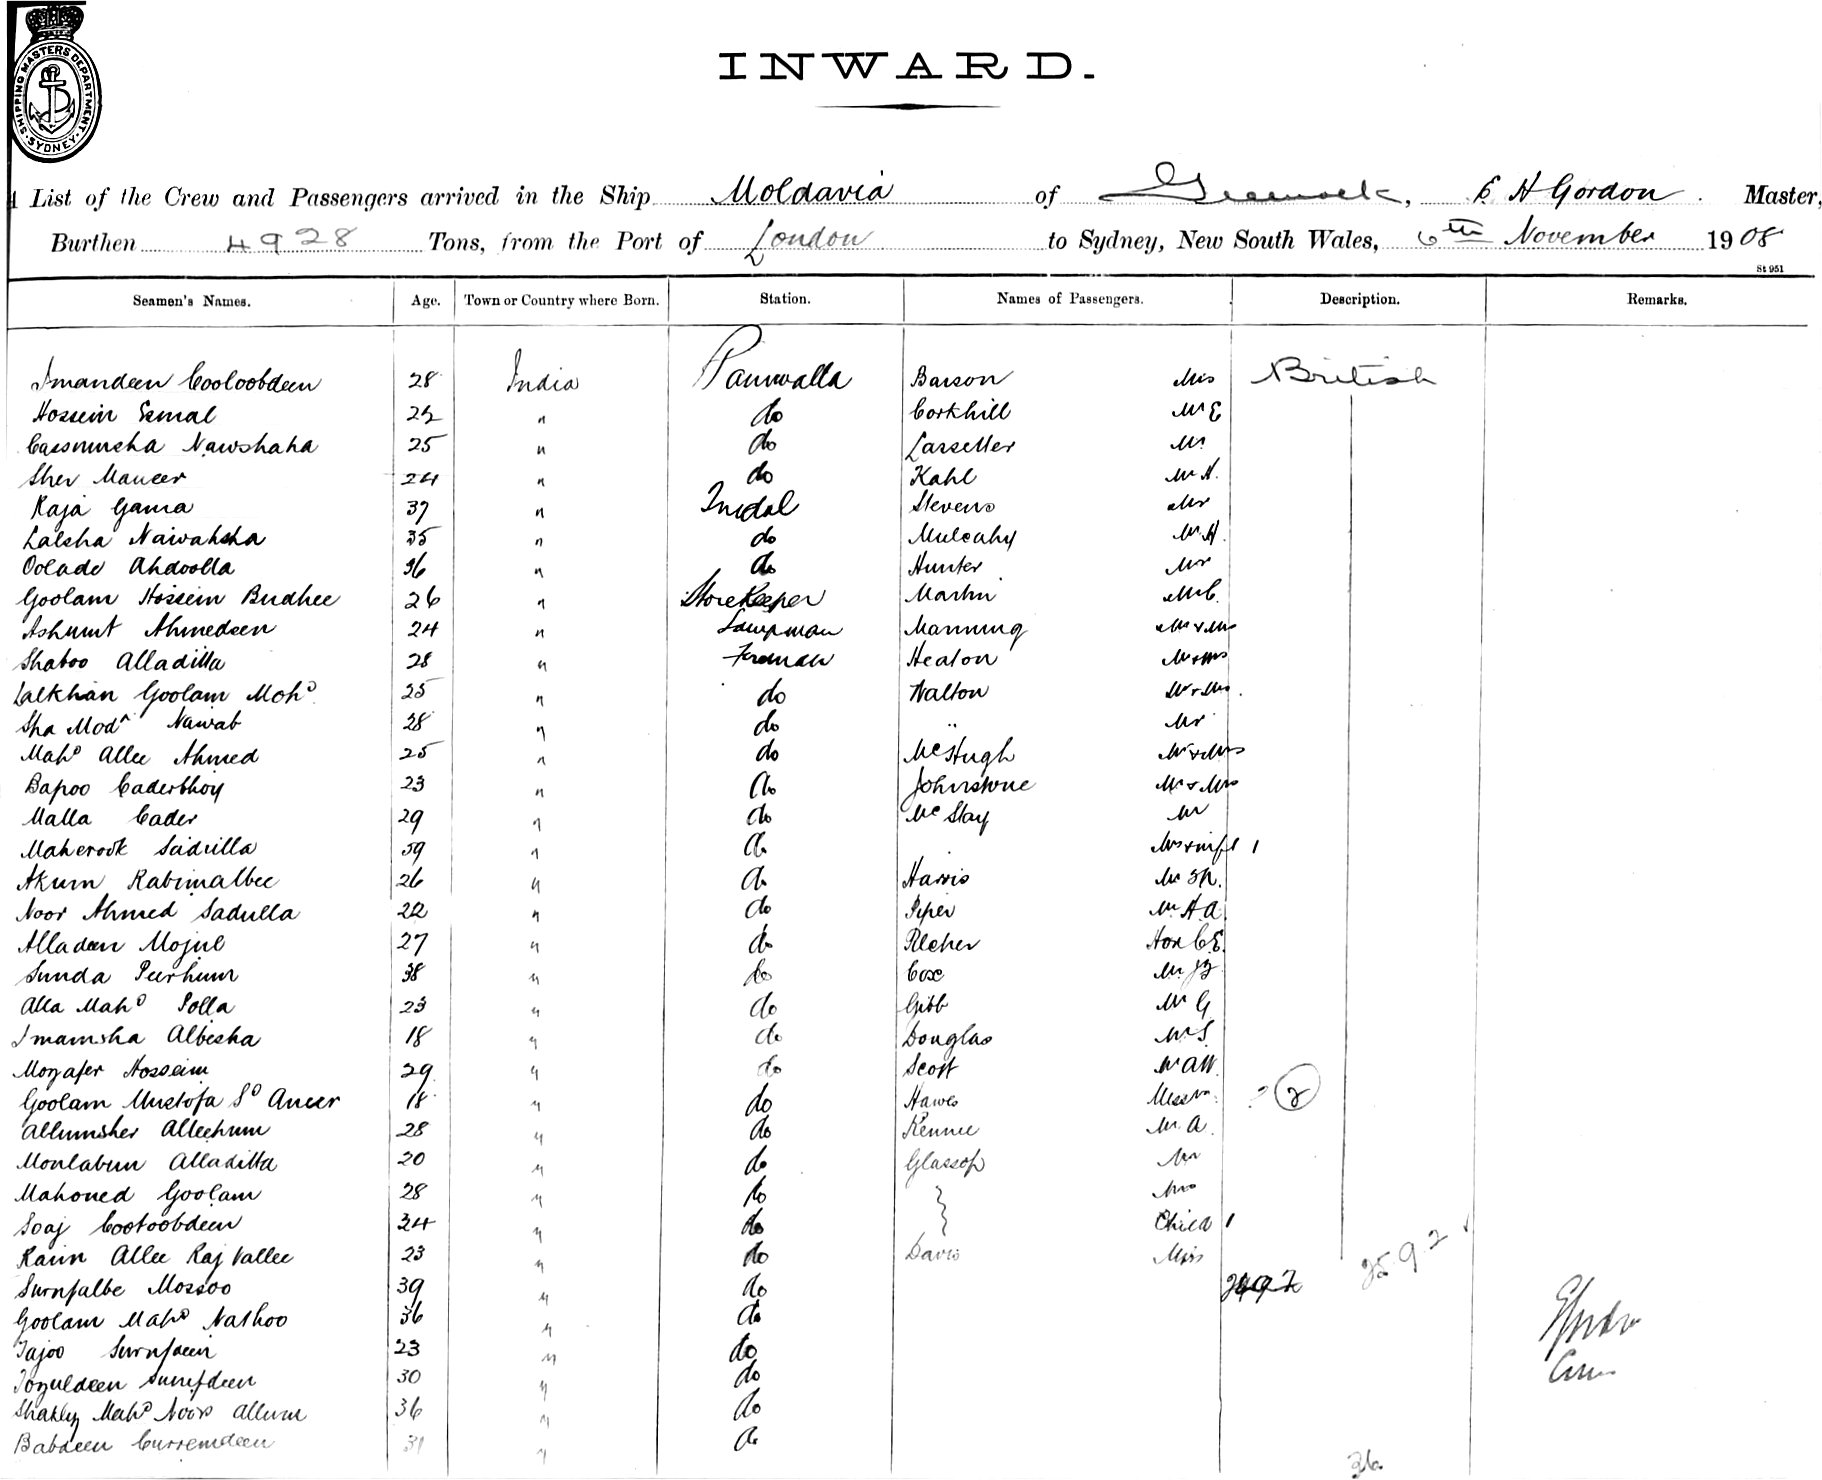 SHIPPING MASTERS DEPARTMENT · SYDNEY ·
INWARD.
List of the Crew and Passengers arrived in the Ship Moldavia of Greenock, E H Gordon. Master,
Burthen 4928 Tons, from the Port of London to Sydney, New South Wales, 6th November 1908
St 951
Seamen's Names. Age. Town or Country where Born. Station. Names of Passengers. Description. Remarks.
Imandeen Cooloobdeen 28 India Paniwalla Barson Mis British
Hossein Esmal 25 " do Corkhill Mr E
Cassumsha Nawshaha 25 " do Lassetter Mr
Sher Maneer 24 " do Kahl Mr H.
Raja Gama 37 " Tindal Stevens Mr
Lalsha Nawabsha 35 " do Mulcahy Mr H.
Oolade Abdoolla 36 " do Hunter Mr
Goolam Hossein Budhee 26 " Storekeeper Martin Mr C.
Ashumt Ahmedeen 24 " Lampman Manning Mr & Mrs
Shaboo Alladitta 28 " Fireman Heaton Mr & Mrs
Lalkhan Goolam Mohd 25 " do Walton Mr & Mrs.
Sha Modn Nawab 28 " do " Mr
Mahd Allee Ahmed 25 " do McHugh Mr & Mrs
Bapoo Caderbhoy 23 " do Johnstone Mr & Mrs
Malla Cader 29 " do McStay Mr
Maherook Sadulla 39 " do Mrs & inft 1
Akum Rabimalbee 26 " do Harris Mr
Noor Ahmed Sadulla 22 " do Piper Mr H.A
Alladeen Mojul 27 " do Pilcher Hon C.E.
Sunda Peerhum 38 " do Cox Mr
Alla Mahd Polla 23 " do Gibb Mr G
Imamsha Albesha 18 " do Douglas Mr S.
Mozafer Hossein 29 " do Scott Mr AW.
Goolam Mustofa Sd Ameer 18 " do Hawes Messrs 2
Allumsher Alleehum 28 " do Rennie Mr A.
Moulabun Alladitta 20 " do Glassop Mr
Mahomed Goolam 28 " do Mrs
Soaj Cootoobdeen 34 " do Child 1
Raim Allee Raj Vallee 23 " do Davis Miss
Surnfalbe Mossoo 39 " do
Goolam Mahd Nathoo 36 " do
Tajoo Surnfdeen 23 " do
Tozuldeen Surnfdeen 30 " do
Shakly Mahd Noor Allum 36 " do
Babdeen Curremdeen 31 " do
36